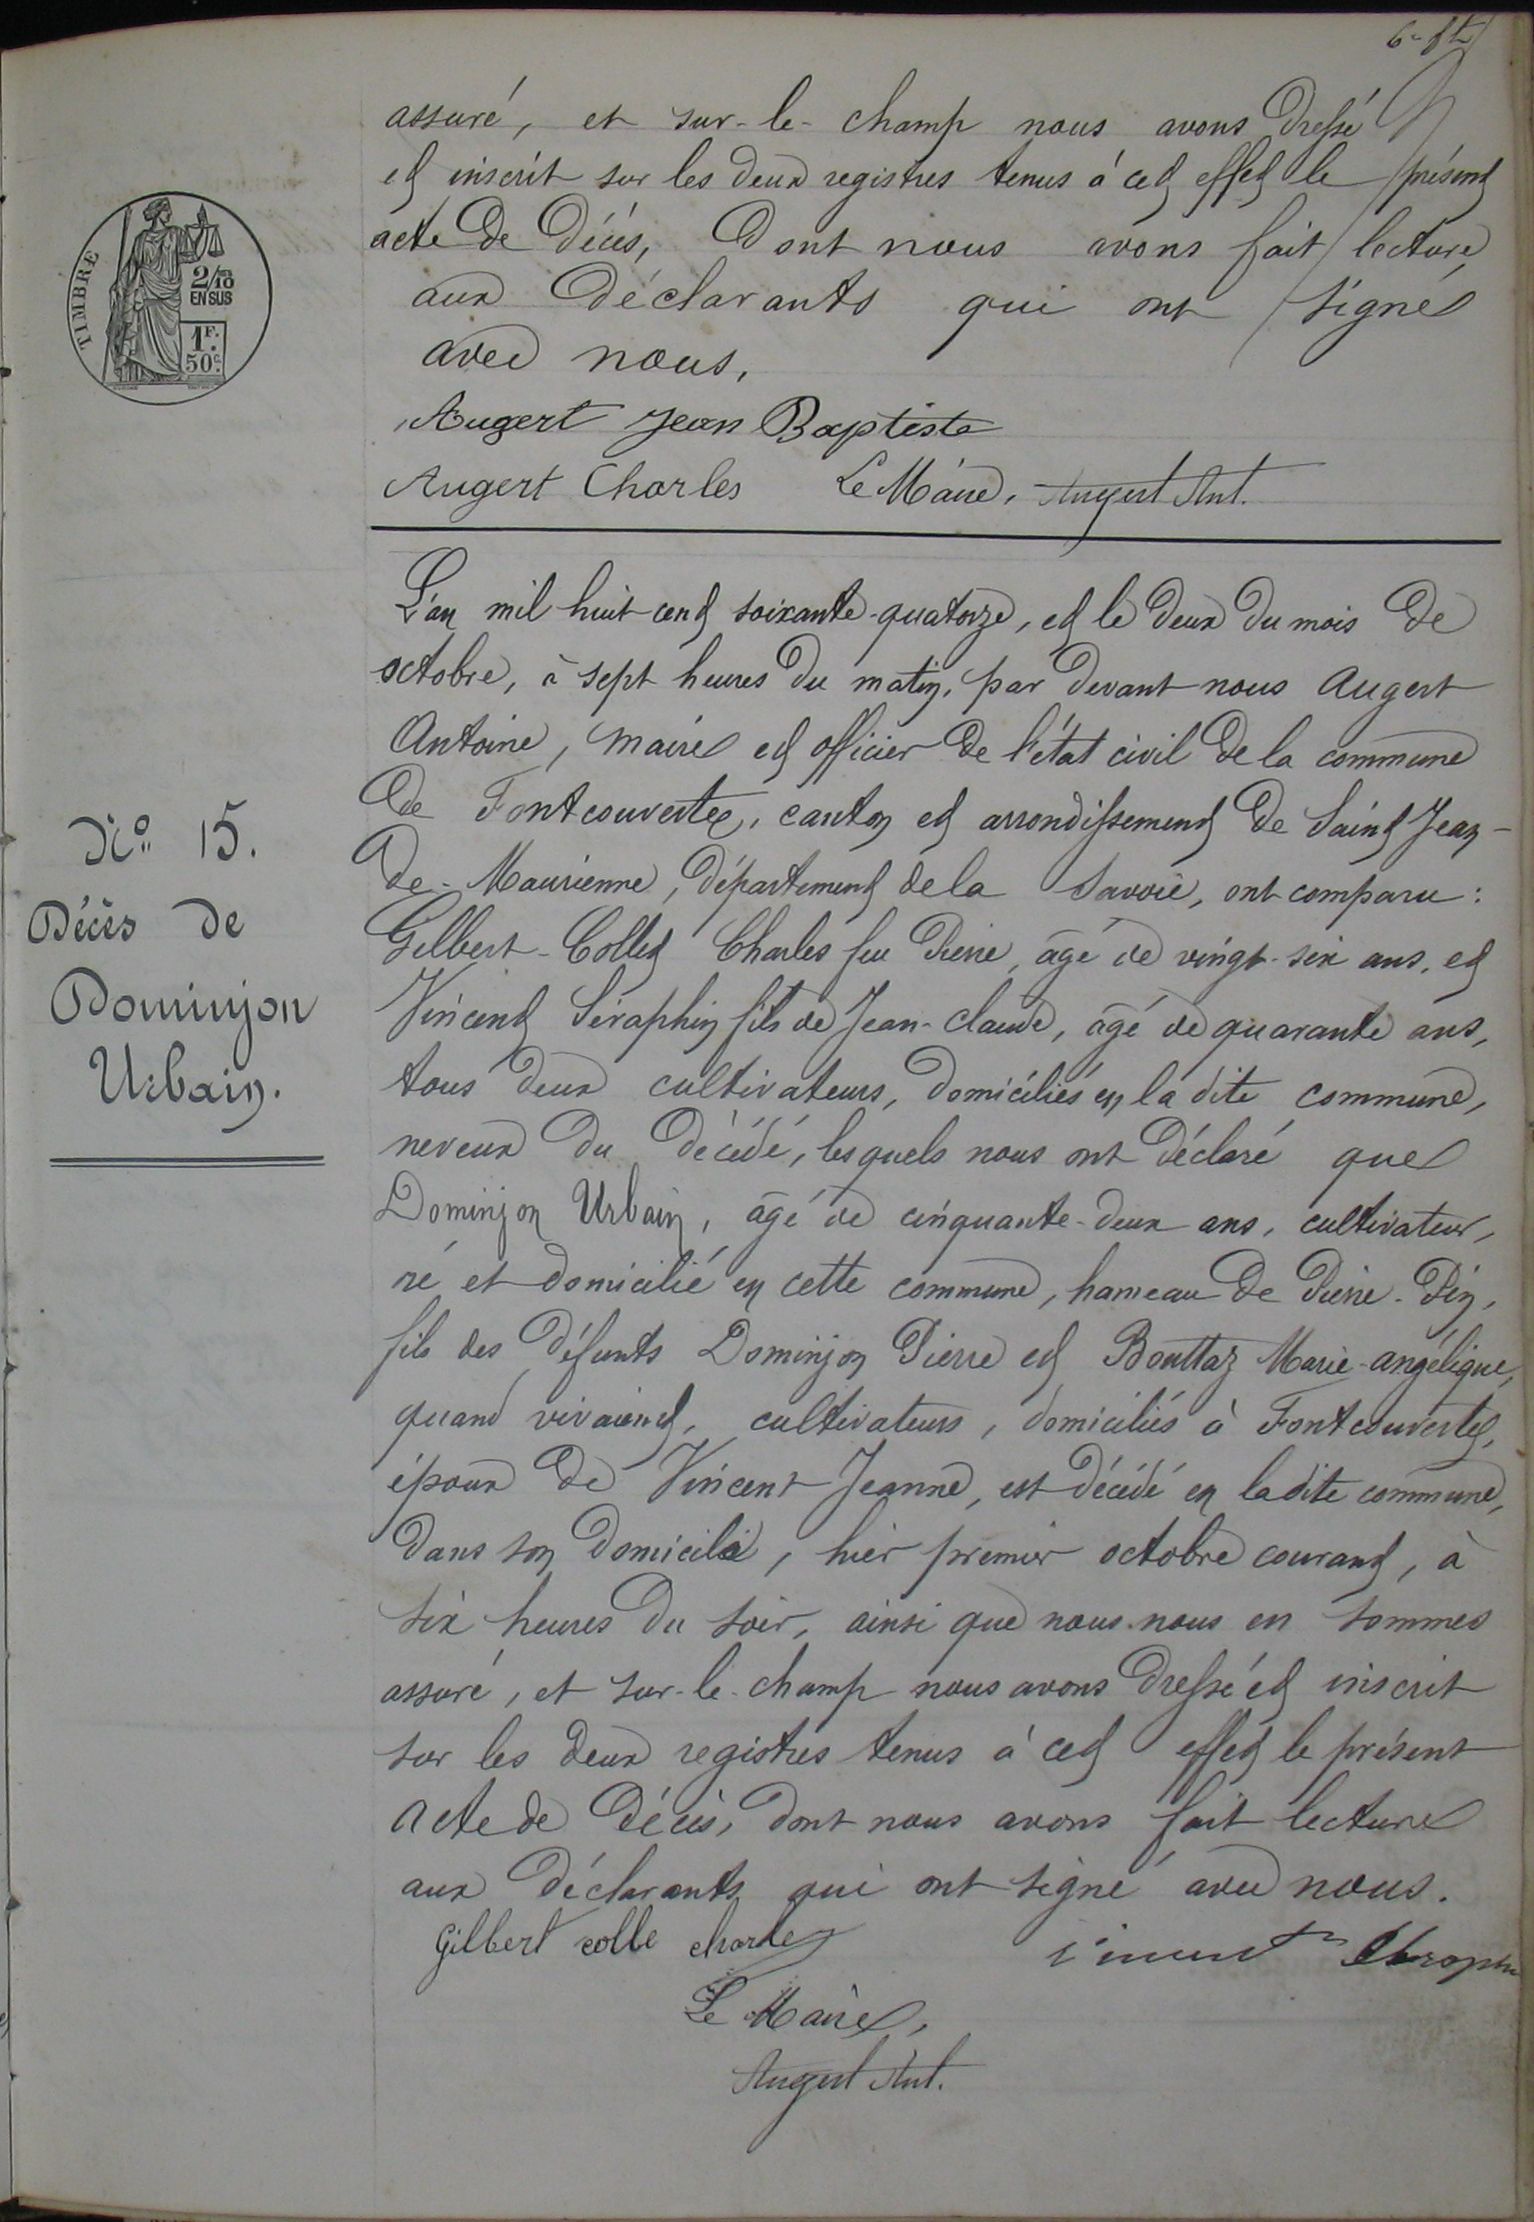 6
assuré, et sur-le-champ nous avons dressé
et inscrit sur les deux registres tenus à cet effet le présent
acte de décès, dont nous avons fait lecture
aux déclarants qui ont signé
avec nous.
Augert Jean Baptiste
Augert Charles Le Maire, Augert Ant.
TIMBRE
2/10
EN SUS
1F.
50c.
No 15.
Décès de
Dominjon
Urbain.
L'an mil huit cent soixante-quatorze, et le deux du mois de
octobre, à sept heures du matin, par devant nous Augert
Antoine, maire et officier de l'état civil de la commune
de Fontcouverte, canton et arrondissement de Saint Jean-
de-Maurienne, département de la Savoie, ont comparu :
Gilbert-Collet Charles feu Pierre, âgé de vingt-six ans, et
Vincent Séraphin fils de Jean-Claude, âgé de quarante ans,
tous deux cultivateurs, domiciliés en la dite commune,
neveux du décédé, lesquels nous ont déclaré que
Dominjon Urbain, âgé de cinquante-deux ans, cultivateur,
né et domicilié en cette commune, hameau de Pierre-Pin,
fils des défunts Dominjon Pierre et Bouttaz Marie-angélique,
quand vivaient, cultivateurs, domiciliés à Fontcouverte,
époux de Vincent Jeanne, est décédé en la dite commune,
dans son domicile, hier premier octobre courant, à
six heures du soir, ainsi que nous nous en sommes
assuré, et sur-le-champ nous avons dressé et inscrit
sur les deux registres tenus à cet effet le présent
acte de décès, dont nous avons fait lecture
aux déclarants qui ont signé avec nous.
Gilbert colle charle
Le Maire,
Augert Ant.